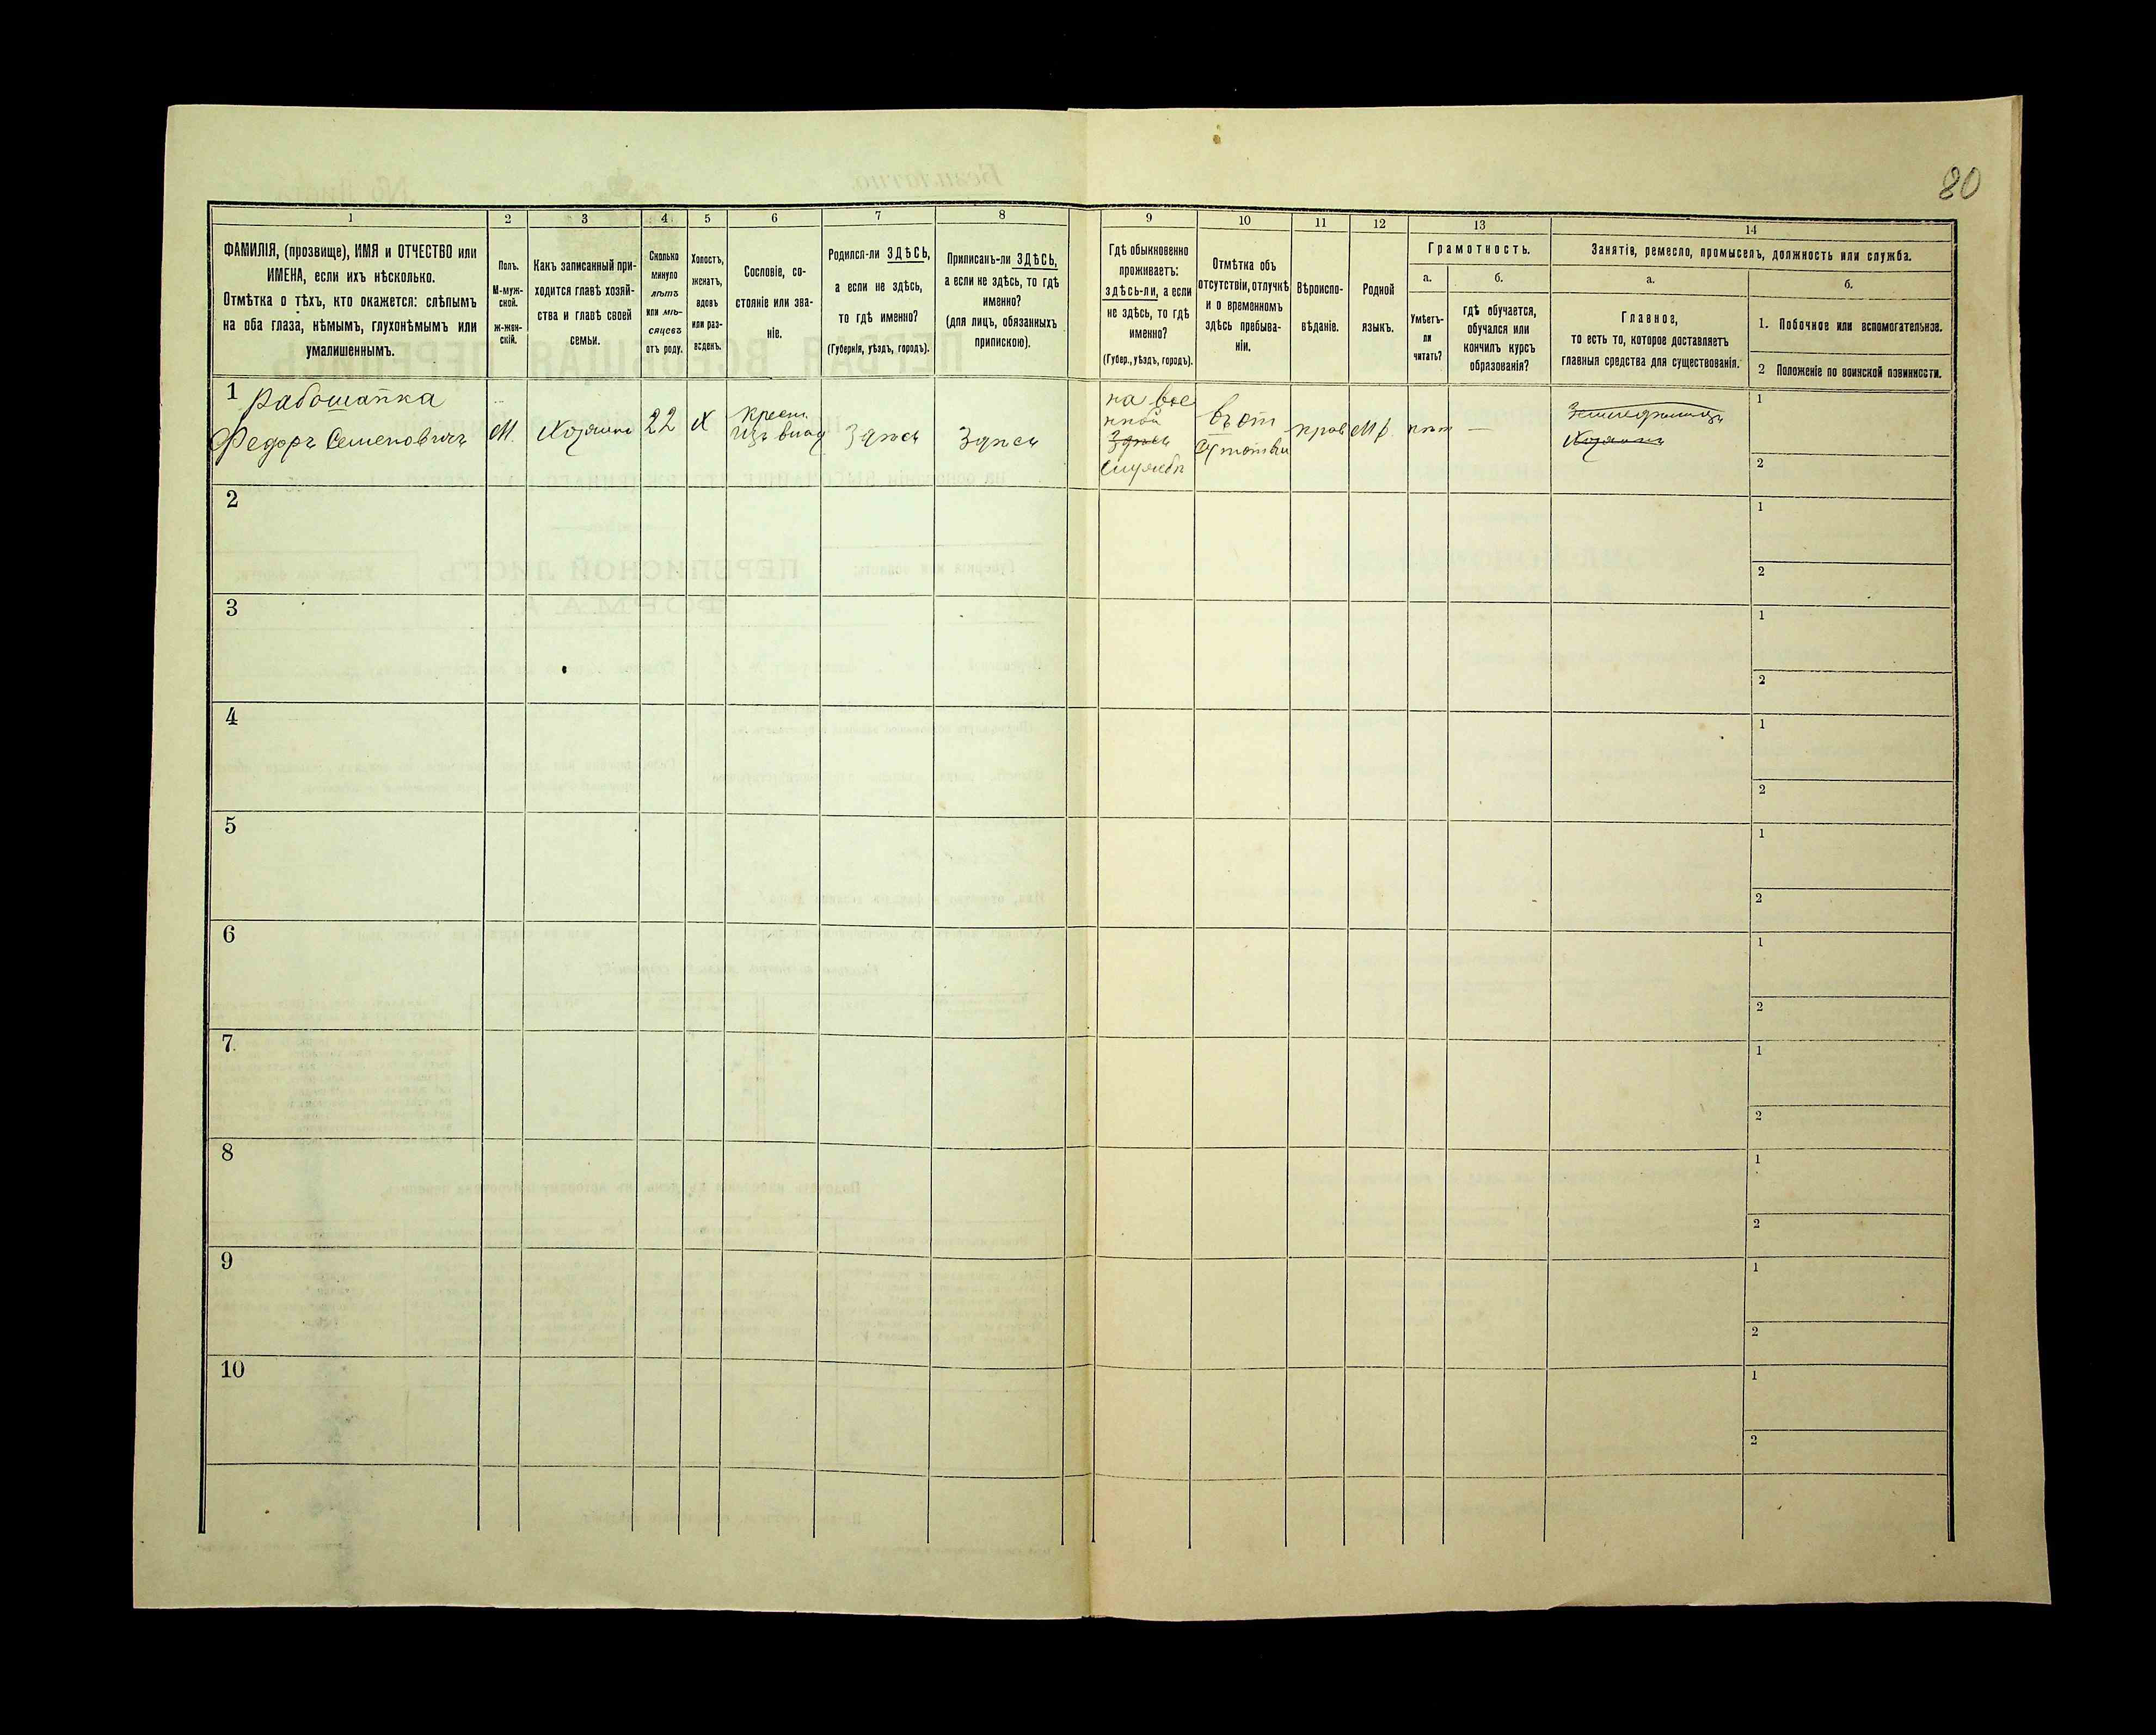 80
1
2
3
4
5
6
7
8
9
10
11
12
13
14
ФАМИЛІЯ, (прозвище), ИМЯ и ОТЧЕСТВО или
ИМЕНА, если ихъ нѣсколько.
Отмѣтка о тѣхъ, кто окажется: слѣпымъ
на оба глаза, нѣмымъ, глухонѣмымъ или
умалишеннымъ.
Полъ.
М-муж-
ской.
ж-жен-
скій.
Какъ записанный при-
ходится главѣ хозяй-
ства и главѣ своей
семьи.
Сколько
минуло
лѣтъ
или мѣ-
сяцевъ
отъ роду.
Холостъ,
женатъ,
вдовъ
или раз-
веденъ.
Сословіе, со-
стояніе или зва-
ніе.
Родился-ли ЗДѢСЬ,
а если не здѣсь,
то гдѣ именно?
(Губернія, уѣздъ, городъ).
Приписанъ-ли ЗДѢСЬ,
а если не здѣсь, то гдѣ
именно?
(для лицъ, обязанныхъ
припискою).
Гдѣ обыкновенно
проживаетъ:
здѣсь-ли, а если
не здѣсь, то гдѣ
именно?
(Губер., уѣздъ, городъ).
Отмѣтка объ
отсутствіи, отлучкѣ
и о временномъ
здѣсь пребыва-
ніи.
Вѣроиспо-
вѣданіе.
Родной
языкъ.
Грамотность.
а.
Умѣетъ-
ли
читать?
б.
гдѣ обучается,
обучался или
кончилъ курсъ
образованія?
Занятія, ремесло, промыселъ, должность или служба.
а.
Главное,
то есть то, которое доставляетъ
главныя средства для существованія.
б.
1. Побочное или вспомогательное.
2 Положеніе по воинской повинности.
1 Рабошапка
Федоръ Семеновичъ
М.
Хозяинъ
22
Х
Крест.
изъ влад
Здѣсь
Здѣсь
на вое
нной
Здѣсь
службѣ
въ от
сутствіи
прав
Мр.
нѣт
—
Земледѣлецъ
Хозяинъ
1
2
2
1
2
3
1
2
4
1
2
5
1
2
6
1
2
7.
1
2
8
1
2
9
1
2
10
1
2